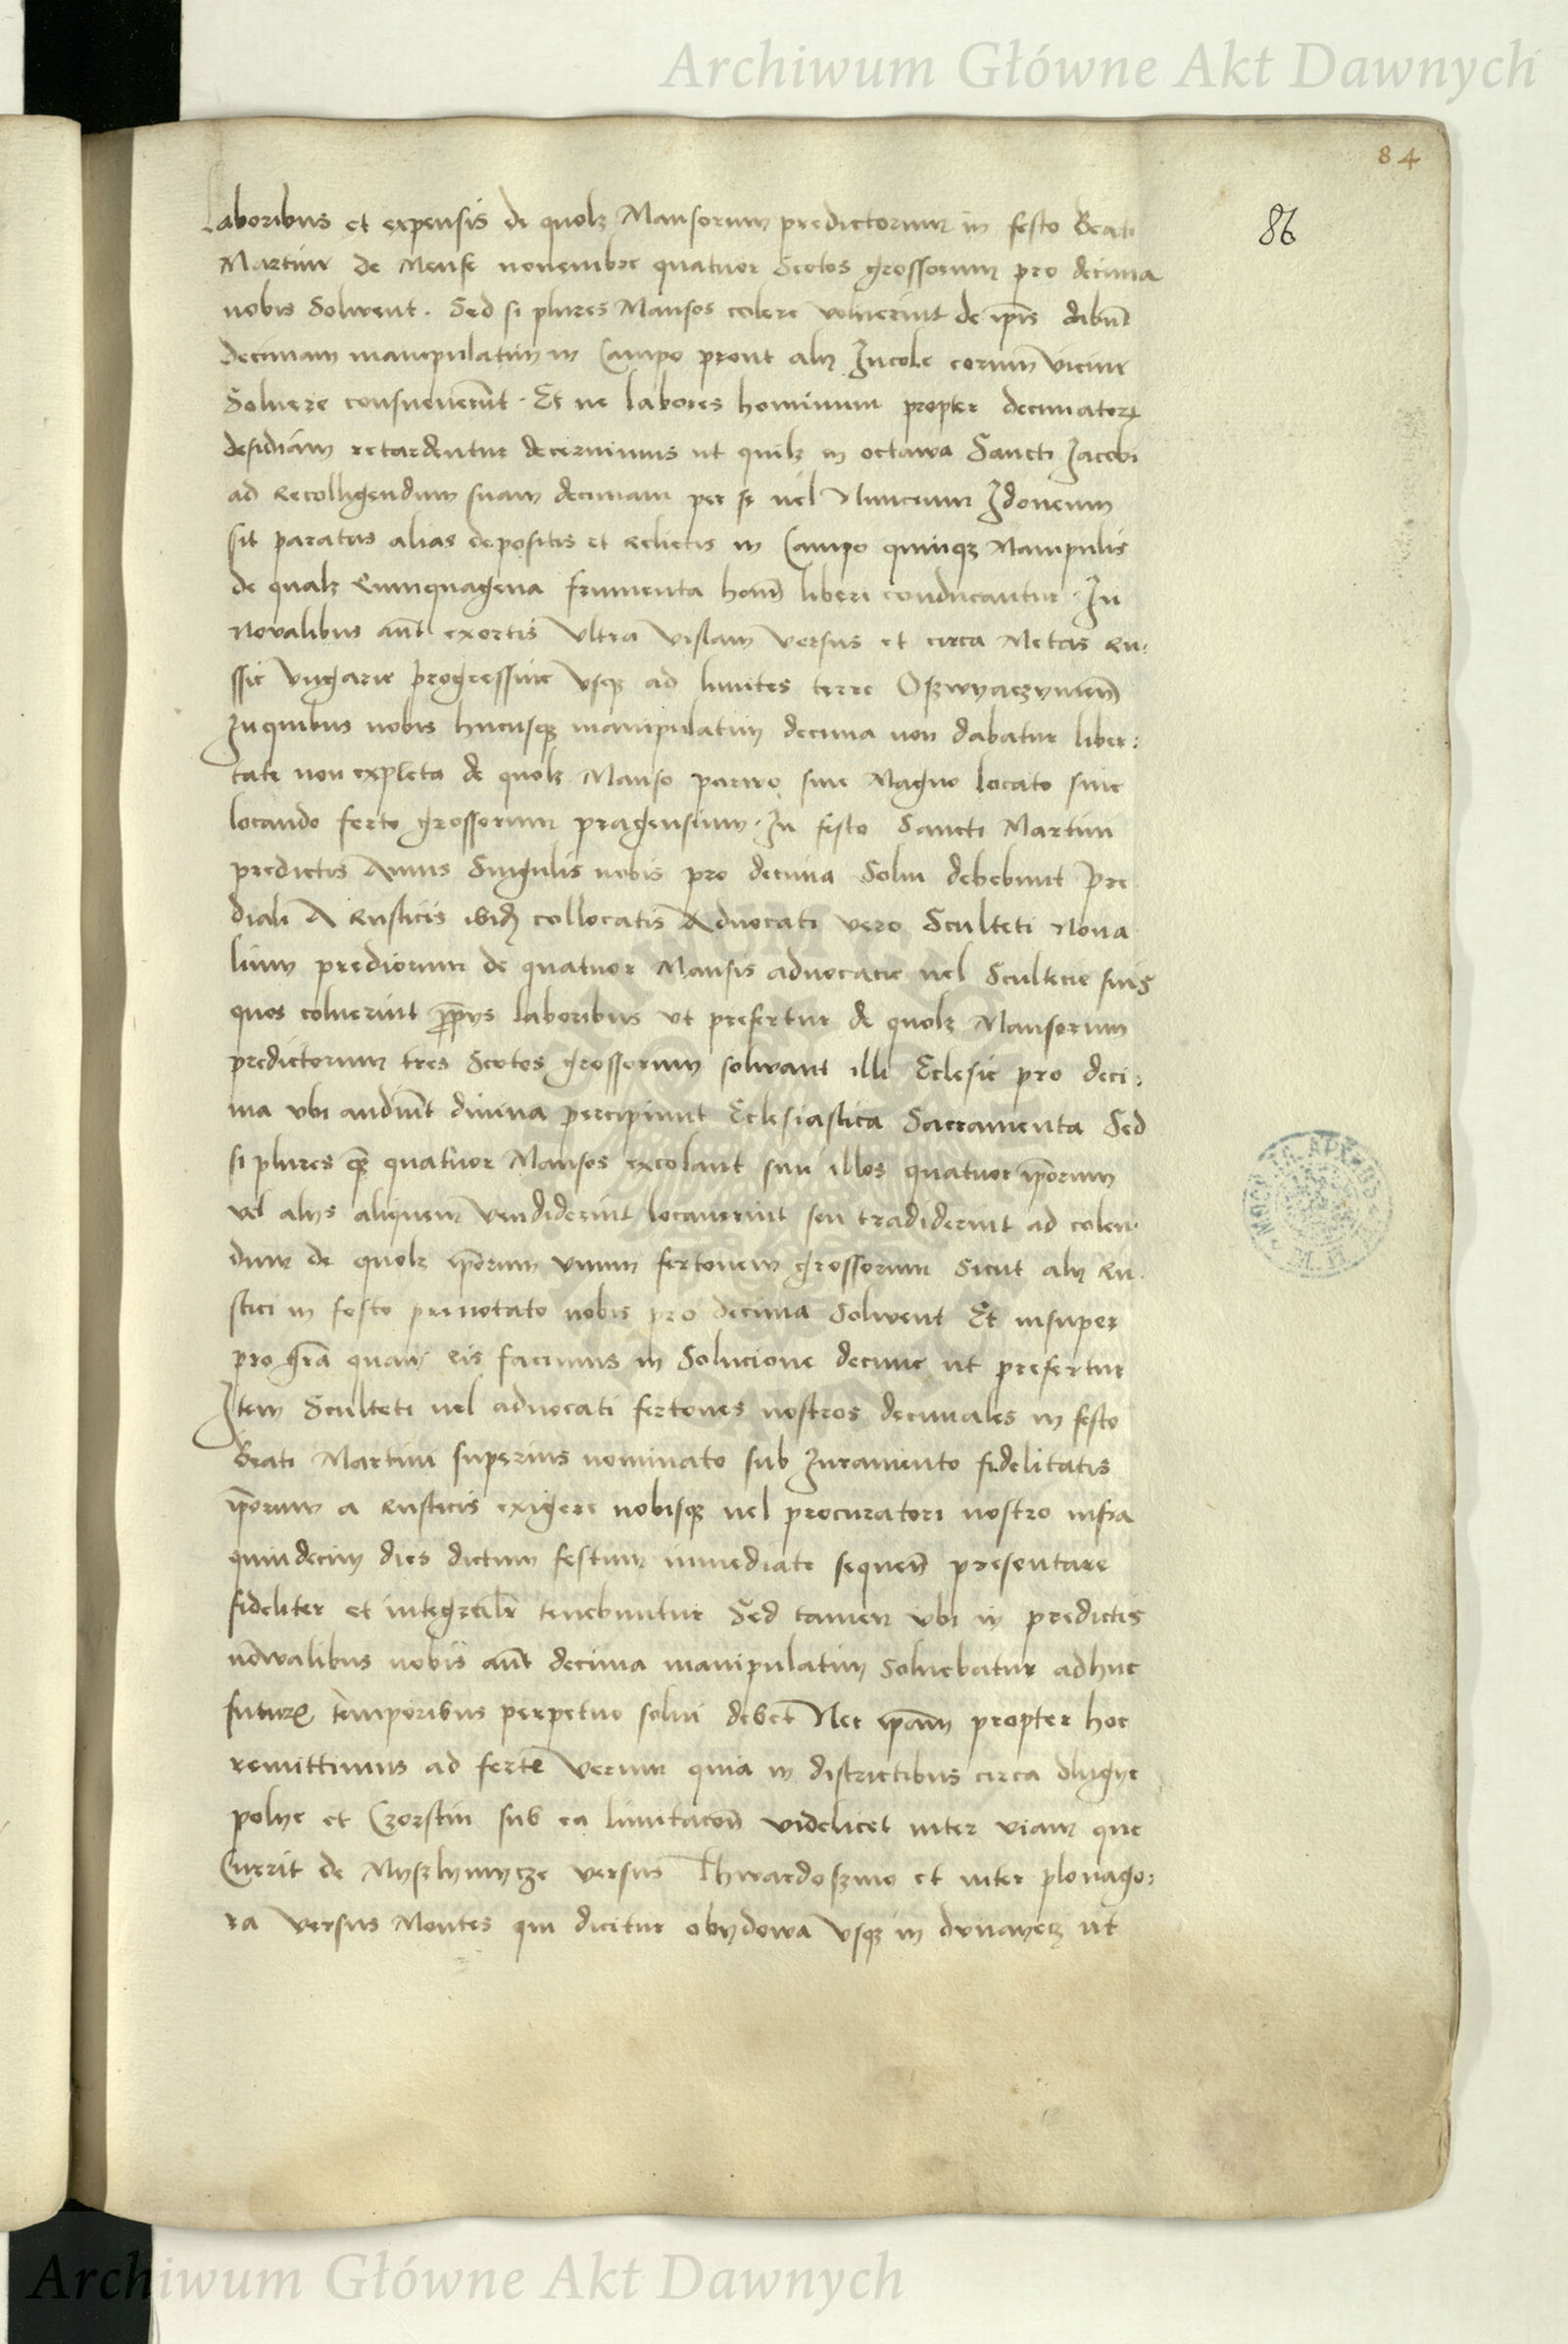 Archiwum Główne Akt Dawnych
84
86
Laboribus et expensis de quolz Mansorum predictorum in festo Beati
Martini de Mense nouembre quatuor Scotos grossorum pro decima
nobis Solwent. Sed si plures Mansos colere voluerint de ip̄is dabūt
decimam manipulatim in Campo prout alij Incole eorum vicini
Soluere consueuerūt. Et ne labores hominum propter decimatorꝝ
desidiam retardentur decernimus ut quilz in octawa Sancti Jacobi
ad Recolligendum suam decimam per se uel Nunccium Idoneum
sit paratus alias depositis et Relictis in Campo quinqꝫ Manipulis
de qualz Quinquagena frumenta hom̄ liberi conducantur. In
Noualibus aūt exortis Vltra vislam versus et circa Metas Ru:
ssie Vngarie progressiue Vsqꝫ ad limites terre Oszwyaczymen̄
Inquibus nobis hucusqꝫ manipulatim decima non dabatur liber:
tate non expleta de quolz Manso parwo siue Magno locato siue
locando ferto grossorum pragensium. In festo Sancti Martini
predictis Annis Singulis nobis pro decima Solui debebunt Pre
diali A Rusticis ibidꝫ collocatis Aduocati vero Sculteti Noua
lium prediorum de quatuor Mansis aduocacie uel Scultecie suis
quos coluerint pp̄ijs laboribus vt prefertur de quolz Mansorum
predictorum tres Scotos grossorum solwant illi Eclesie pro deci:
ma vbi audiūt diuina percipiunt Eclesiastica Sacramenta Sed
si plures qꝫ quatuor Mansos excolant siui illos quatuor ip̄orum
vel alijs aliquem vendiderint locauerint seu tradiderint ad colen:
dum de quolz ip̄orum vnum fertonem grossorum Sicut alij Ru:
stici in festo prenotato nobis pro decima Solwent Et insuper
pro gr̄a quam eis facimus in Solucione decime ut prefertur
Item Sculteti uel aduocati fertones nostros decimales in festo
Beati Martini superius nominato sub Iuramento fidelitatis
ip̄orum a Rusticis exigere nobisqꝫ uel procuratori nostro infra
quindecim dies dictum festum immediate sequen̄ presentare
fideliter et integralr̄ tenebuntur Sed tamen vbi in predictis
nowalibus nobis aūt decima manipulatim Soluebatur adhuc
futurꝭ temporibus perpetuo solui debet Nec ip̄am propter hoc
remittimus ad fertō Verum quia in districtibus circa dlugye
polye et Czorstin sub ea limitacōn videlicet inter viam que
Currit de Myszlymycze versus Thwardoszino et inter plonago:
ra versus Montes qui dicitur obydowa Vsqꝫ in dunayecz ut
Archiwum Główne Akt Dawnych